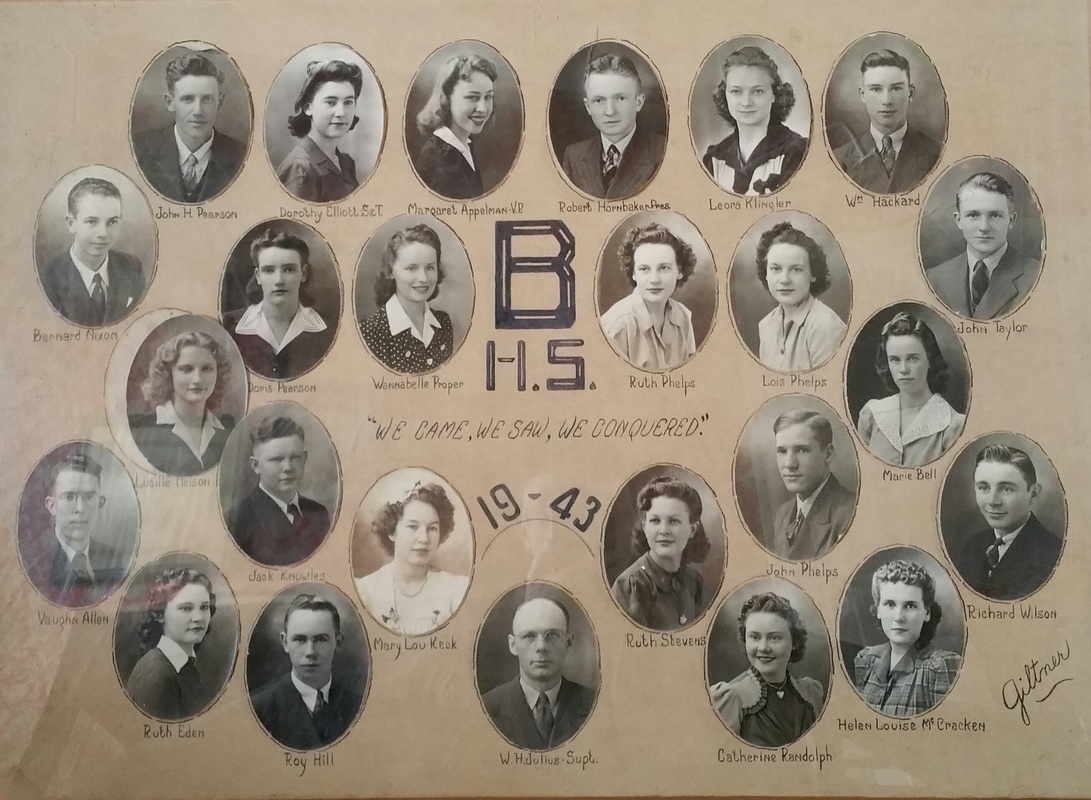 John H. Pearson
Dorothy Elliott-S&T.
Margaret Appelman-V.P.
Robert Hornbaker Pres.
Leora Klingler
Wm Hackard
Bernard Nixon
Doris Pearson
Wannabelle Proper
B
H.S.
Ruth Phelps
Lois Phelps
John Taylor
Lucille Nelson
"WE CAME, WE SAW, WE CONQUERED."
Marie Bell
19-43
Vaughn Allen
Jack Knowles
Mary Lou Keck
Ruth Stevens
John Phelps
Richard Wilson
Ruth Eden
Roy Hill
W.H. Julius-Supt.
Catherine Randolph
Helen Louise McCracken
Giltner